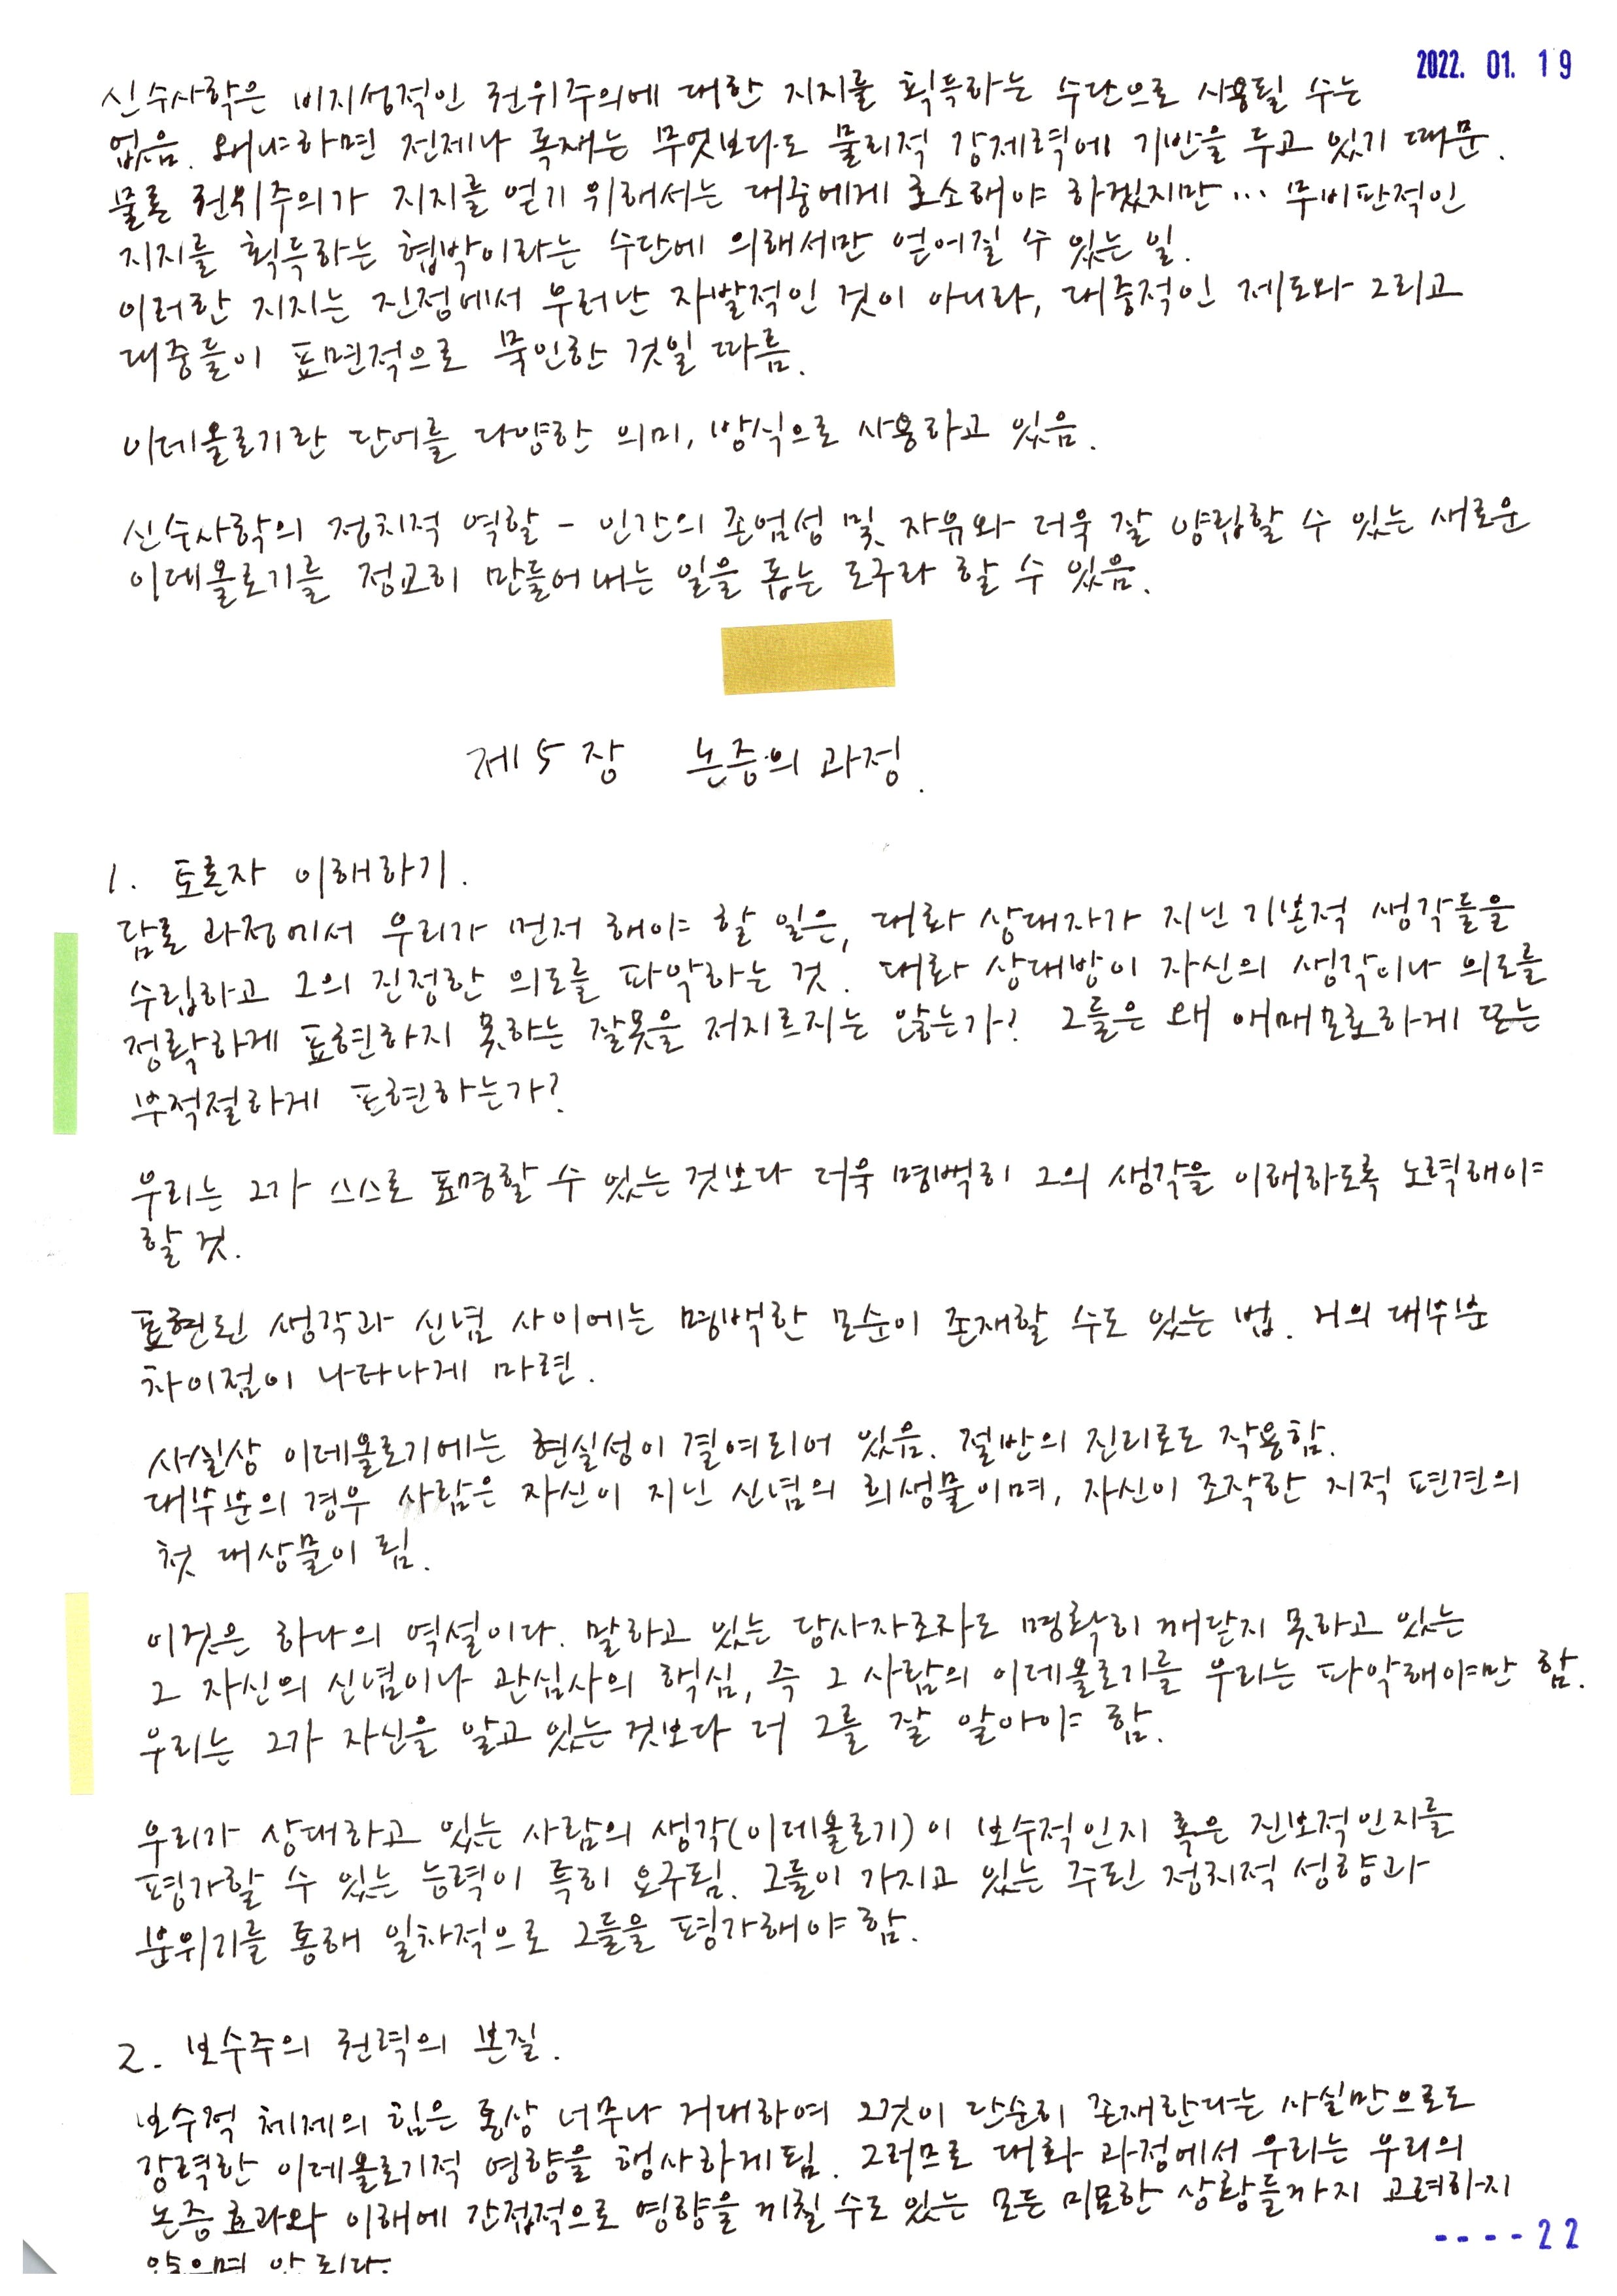 2022. 01. 19
신수사학은 비지성적인 권위주의에 대한 지지를 획득하는 수단으로 사용될 수는
없음. 왜냐하면 전제나 독재는 무엇보다도 물리적 강제력에 기반을 두고 있기 때문.
물론 권위주의가 지지를 얻기 위해서는 대중에게 호소해야 하겠지만… 무비판적인
지지를 획득하는 협박이라는 수단에 의해서만 얻어질 수 있는 일.
이러한 지지는 진정에서 우러난 자발적인 것이 아니라, 대중적인 제도와 그리고
대중들이 표면적으로 묵인한 것일 따름.
이데올로기란 단어를 다양한 의미, 방식으로 사용하고 있음.
신수사학의 정치적 역할 - 인간의 존엄성 및 자유와 더욱 잘 양립할 수 있는 새로운
이데올로기를 정교히 만들어내는 일을 돕는 도구라 할 수 있음.
제5장 논증의 과정.
1. 토론자 이해하기.
담론 과정에서 우리가 먼저 해야 할 일은, 대화 상대자가 지닌 기본적 생각들을
수립하고 그의 진정한 의도를 파악하는 것. 대화 상대방이 자신의 생각이나 의도를
정확하게 표현하지 못하는 잘못을 저지르지는 않는가? 그들은 왜 애매모호하게 또는
부적절하게 표현하는가?
우리는 그가 스스로 표명할 수 있는 것보다 더욱 명백히 그의 생각을 이해하도록 노력해야
할 것.
표현된 생각과 신념 사이에는 명백한 모순이 존재할 수도 있는 법. 거의 대부분
차이점이 나타나게 마련.
사실상 이데올로기에는 현실성이 결여되어 있음. 절반의 진리로도 작용함.
대부분의 경우 사람은 자신이 지닌 신념의 희생물이며, 자신이 조작한 지적 편견의
첫 대상물이 됨.
이것은 하나의 역설이다. 말하고 있는 당사자조차도 명확히 깨닫지 못하고 있는
그 자신의 신념이나 관심사의 핵심, 즉 그 사람의 이데올로기를 우리는 파악해야만 함.
우리는 그가 자신을 알고 있는 것보다 더 그를 잘 알아야 함.
우리가 상대하고 있는 사람의 생각(이데올로기)이 보수적인지 혹은 진보적인지를
평가할 수 있는 능력이 특히 요구됨. 그들이 가지고 있는 주된 정치적 성향과
분위기를 통해 일차적으로 그들을 평가해야 함.
2. 보수주의 권력의 본질.
보수적 체제의 힘은 통상 너무나 거대하여 그것이 단순히 존재한다는 사실만으로도
강력한 이데올로기적 영향을 행사하게 됨. 그러므로 대화 과정에서 우리는 우리의
논증 효과와 이해에 간접적으로 영향을 끼칠 수도 있는 모든 미묘한 상황들까지 고려하지
않으면 안 된다.
----22